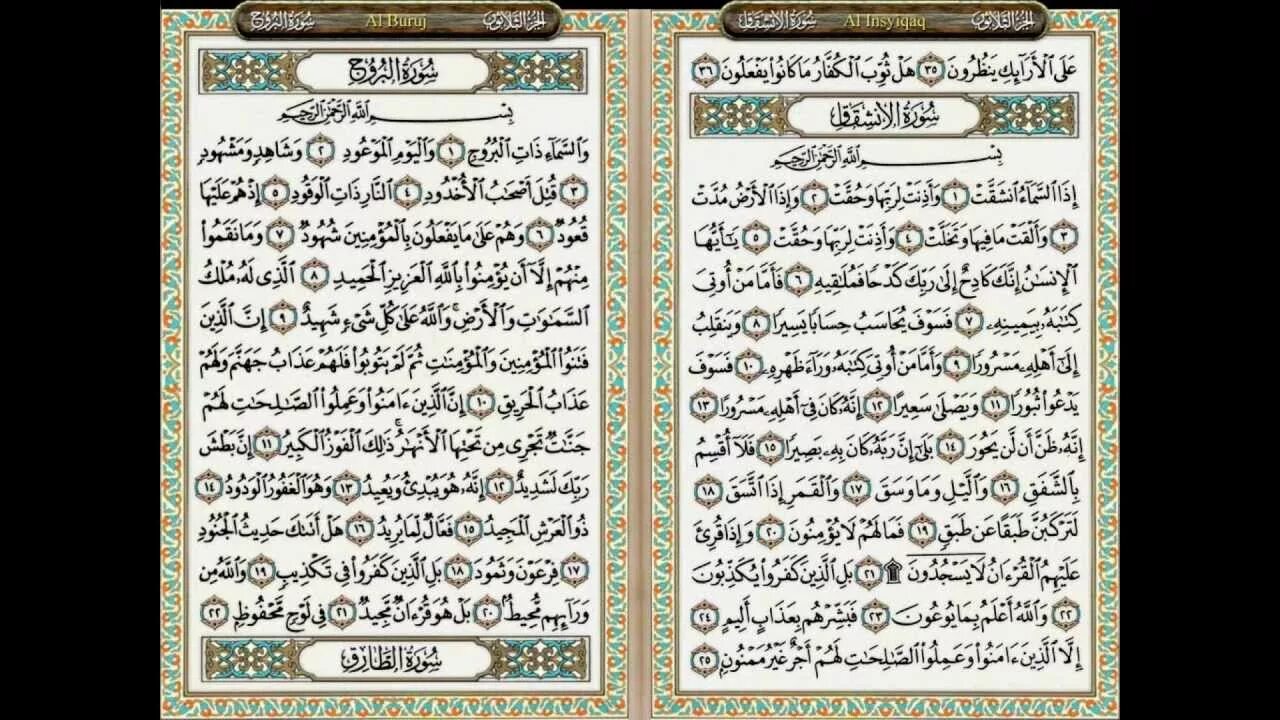 سورة الانشقاق Al Insyiqaq الجزء الثلاثون
عَلَى ٱلْأَرَآئِكِ يَنظُرُونَ ٣٥ هَلْ ثُوِّبَ ٱلْكُفَّارُ مَا كَانُوا۟ يَفْعَلُونَ ٣٦
سُورَةُ الِانْشِقَاقِ
بِسْمِ ٱللَّهِ ٱلرَّحْمَٰنِ ٱلرَّحِيمِ
إِذَا ٱلسَّمَآءُ ٱنشَقَّتْ ١ وَأَذِنَتْ لِرَبِّهَا وَحُقَّتْ ٢ وَإِذَا ٱلْأَرْضُ مُدَّتْ
٣ وَأَلْقَتْ مَا فِيهَا وَتَخَلَّتْ ٤ وَأَذِنَتْ لِرَبِّهَا وَحُقَّتْ ٥ يَٰٓأَيُّهَا
ٱلْإِنسَٰنُ إِنَّكَ كَادِحٌ إِلَىٰ رَبِّكَ كَدْحًا فَمُلَٰقِيهِ ٦ فَأَمَّا مَنْ أُوتِىَ
كِتَٰبَهُۥ بِيَمِينِهِۦ ٧ فَسَوْفَ يُحَاسَبُ حِسَابًا يَسِيرًا ٨ وَيَنقَلِبُ
إِلَىٰٓ أَهْلِهِۦ مَسْرُورًا ٩ وَأَمَّا مَنْ أُوتِىَ كِتَٰبَهُۥ وَرَآءَ ظَهْرِهِۦ ١٠ فَسَوْفَ
يَدْعُوا۟ ثُبُورًا ١١ وَيَصْلَىٰ سَعِيرًا ١٢ إِنَّهُۥ كَانَ فِىٓ أَهْلِهِۦ مَسْرُورًا ١٣
إِنَّهُۥ ظَنَّ أَن لَّن يَحُورَ ١٤ بَلَىٰٓ إِنَّ رَبَّهُۥ كَانَ بِهِۦ بَصِيرًا ١٥ فَلَآ أُقْسِمُ
بِٱلشَّفَقِ ١٦ وَٱلَّيْلِ وَمَا وَسَقَ ١٧ وَٱلْقَمَرِ إِذَا ٱتَّسَقَ ١٨
لَتَرْكَبُنَّ طَبَقًا عَن طَبَقٍ ١٩ فَمَا لَهُمْ لَا يُؤْمِنُونَ ٢٠ وَإِذَا قُرِئَ
عَلَيْهِمُ ٱلْقُرْءَانُ لَا يَسْجُدُونَ ۩ ٢١ بَلِ ٱلَّذِينَ كَفَرُوا۟ يُكَذِّبُونَ
٢٢ وَٱللَّهُ أَعْلَمُ بِمَا يُوعُونَ ٢٣ فَبَشِّرْهُم بِعَذَابٍ أَلِيمٍ ٢٤
إِلَّا ٱلَّذِينَ ءَامَنُوا۟ وَعَمِلُوا۟ ٱلصَّٰلِحَٰتِ لَهُمْ أَجْرٌ غَيْرُ مَمْنُونٍ ٢٥
سورة البروج Al Buruj الجزء الثلاثون
سُورَةُ البُرُوجِ
بِسْمِ ٱللَّهِ ٱلرَّحْمَٰنِ ٱلرَّحِيمِ
وَٱلسَّمَآءِ ذَاتِ ٱلْبُرُوجِ ١ وَٱلْيَوْمِ ٱلْمَوْعُودِ ٢ وَشَاهِدٍ وَمَشْهُودٍ
٣ قُتِلَ أَصْحَٰبُ ٱلْأُخْدُودِ ٤ ٱلنَّارِ ذَاتِ ٱلْوَقُودِ ٥ إِذْ هُمْ عَلَيْهَا
قُعُودٌ ٦ وَهُمْ عَلَىٰ مَا يَفْعَلُونَ بِٱلْمُؤْمِنِينَ شُهُودٌ ٧ وَمَا نَقَمُوا۟
مِنْهُمْ إِلَّآ أَن يُؤْمِنُوا۟ بِٱللَّهِ ٱلْعَزِيزِ ٱلْحَمِيدِ ٨ ٱلَّذِى لَهُۥ مُلْكُ
ٱلسَّمَٰوَٰتِ وَٱلْأَرْضِ ۚ وَٱللَّهُ عَلَىٰ كُلِّ شَىْءٍ شَهِيدٌ ٩ إِنَّ ٱلَّذِينَ
فَتَنُوا۟ ٱلْمُؤْمِنِينَ وَٱلْمُؤْمِنَٰتِ ثُمَّ لَمْ يَتُوبُوا۟ فَلَهُمْ عَذَابُ جَهَنَّمَ وَلَهُمْ
عَذَابُ ٱلْحَرِيقِ ١٠ إِنَّ ٱلَّذِينَ ءَامَنُوا۟ وَعَمِلُوا۟ ٱلصَّٰلِحَٰتِ لَهُمْ
جَنَّٰتٌ تَجْرِى مِن تَحْتِهَا ٱلْأَنْهَٰرُ ۚ ذَٰلِكَ ٱلْفَوْزُ ٱلْكَبِيرُ ١١ إِنَّ بَطْشَ
رَبِّكَ لَشَدِيدٌ ١٢ إِنَّهُۥ هُوَ يُبْدِئُ وَيُعِيدُ ١٣ وَهُوَ ٱلْغَفُورُ ٱلْوَدُودُ ١٤
ذُو ٱلْعَرْشِ ٱلْمَجِيدُ ١٥ فَعَّالٌ لِّمَا يُرِيدُ ١٦ هَلْ أَتَىٰكَ حَدِيثُ ٱلْجُنُودِ
١٧ فِرْعَوْنَ وَثَمُودَ ١٨ بَلِ ٱلَّذِينَ كَفَرُوا۟ فِى تَكْذِيبٍ ١٩ وَٱللَّهُ مِن
وَرَآئِهِم مُّحِيطٌۢ ٢٠ بَلْ هُوَ قُرْءَانٌ مَّجِيدٌ ٢١ فِى لَوْحٍ مَّحْفُوظٍۭ ٢٢
سُورَةُ الطَّارِقِ